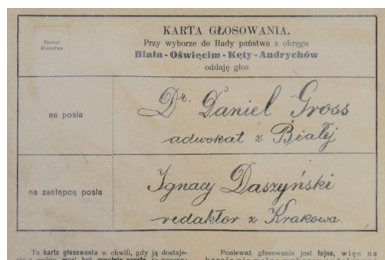 KARTA GŁOSOWANIA.
Przy wyborze do Rady państwa z okręgu
Biała-Oświęcim-Kęty-Andrychów
oddaję głos
na posła
Dr. Daniel Gross
adwokat z Białej
na zastępcę posła
Ignacy Daszyński
redaktor z Krakowa.
Ta karta głosowania w chwili, gdy ją dostaje-
Ponieważ głosowanie jest tajne, więc na